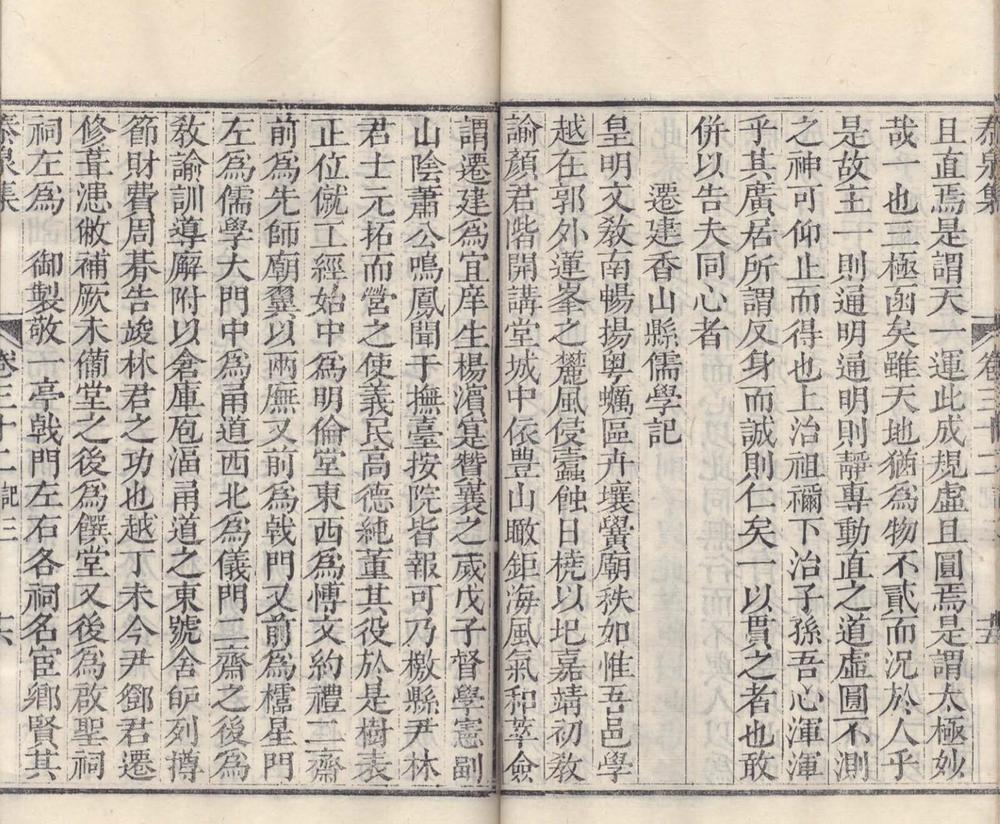 泰泉集 卷三十二 記三 五
且直焉是謂天一運此成規虛且圓焉是謂太極妙
哉一也三極函矣雖天地猶為物不貳而況於人乎
是故主一則通明通明則靜專動直之道虛圓不測
之神可仰止而得也上治祖禰下治子孫吾心渾渾
乎其廣居所謂反身而誠則仁矣一以貫之者也敢
併以告夫同心者
遷建香山縣儒學記
皇明文教南暢揚粵蠣區卉壤黌廟秩如惟吾邑學
越在郭外蓮峯之麓風侵蠹蝕日橈以圮嘉靖初教
諭顏君階開講堂城中依豊山瞰鉅海風氣和萃僉
謂遷建為宜庠生楊濵寔贊襄之歲戊子督學憲副
山陰蕭公鳴鳳聞于撫臺按院皆報可乃檄縣尹林
君士元拓而營之使義民高德純董其役於是樹表
正位僦工經始中為明倫堂東西為博文約禮二齋
前為先師廟翼以兩廡又前為戟門又前為櫺星門
左為儒學大門中為甬道西北為儀門二齋之後為
教諭訓導廨附以倉庫庖湢甬道之東號舍㠯列撙
節財費周朞告竣林君之功也越丁未今尹鄧君遷
修葺漶敝補厥未備堂之後為饌堂又後為啟聖祠
祠左為 御製敬一亭戟門左右各祠名宦鄉賢其
泰泉集 卷三十二 記三 六